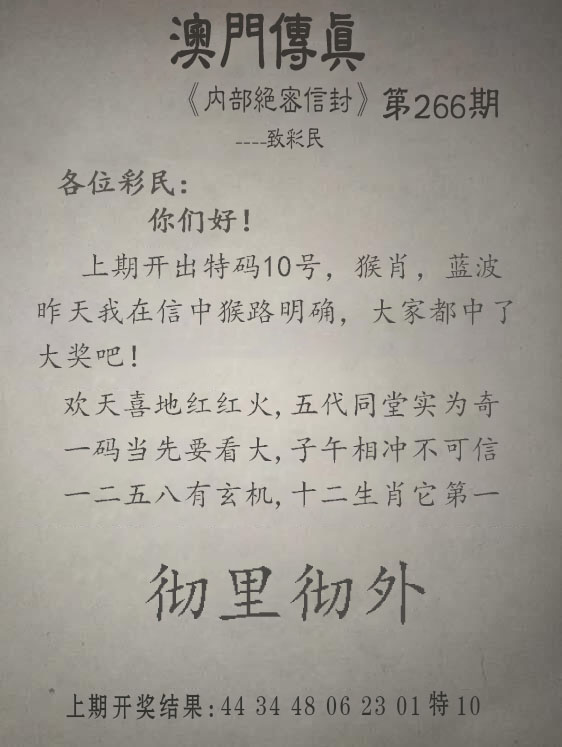 澳門傳真
《内部絕密信封》第266期
----致彩民
各位彩民：
你们好！
上期开出特码10号，猴肖，蓝波
昨天我在信中猴路明确，大家都中了
大奖吧！
欢天喜地红红火,五代同堂实为奇
一码当先要看大,子午相冲不可信
一二五八有玄机,十二生肖它第一
彻里彻外
上期开奖结果:44 34 48 06 23 01特10